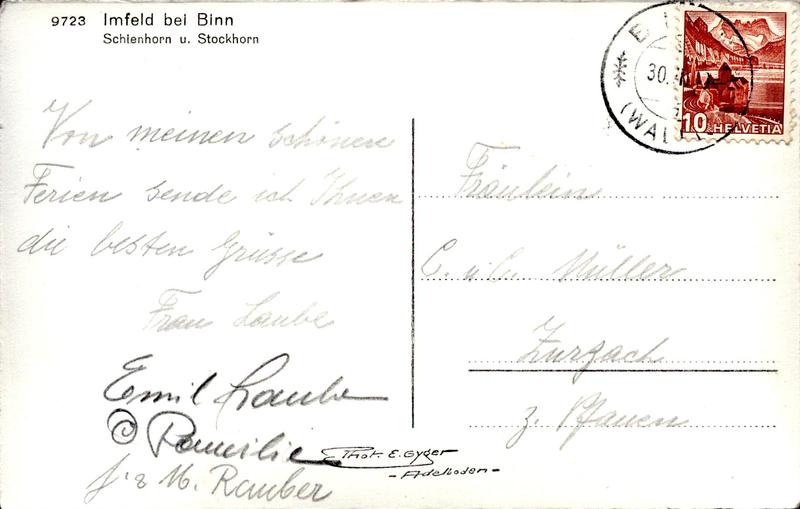 9723 Imfeld bei Binn
Schienhorn u. Stockhorn
Von meinen schönen
Ferien sende ich Ihnen
die besten Grüsse
Frau Laube
Emil Laube
© Familie
J. & M. Rauber
Phot. E. Gyger
- Adelboden -
30.
(WAL
10 HELVETIA
Fräulein
C. u C. Müller
Zurzach
z. Pfauen